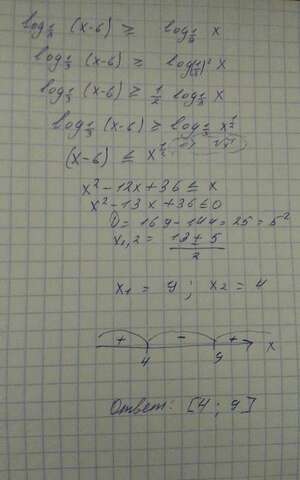 log 1/3 (x-6) ≥ log 1/9 x
log 1/3 (x-6) ≥ log (1/3)² x
log 1/3 (x-6) ≥ 1/2 log 1/3 x
log 1/3 (x-6) ≥ log 1/3 x^1/2
(x-6) ≤ x^1/2 => √x
x² - 12x + 36 ≤ x
x² - 13x + 36 ≤ 0
D = 169 - 144 = 25 = 5²
x1,2 = (13 ± 5)/2
x1 = 9 ; x2 = 4
+ - +
4 9 x
Ответ: [4 ; 9]